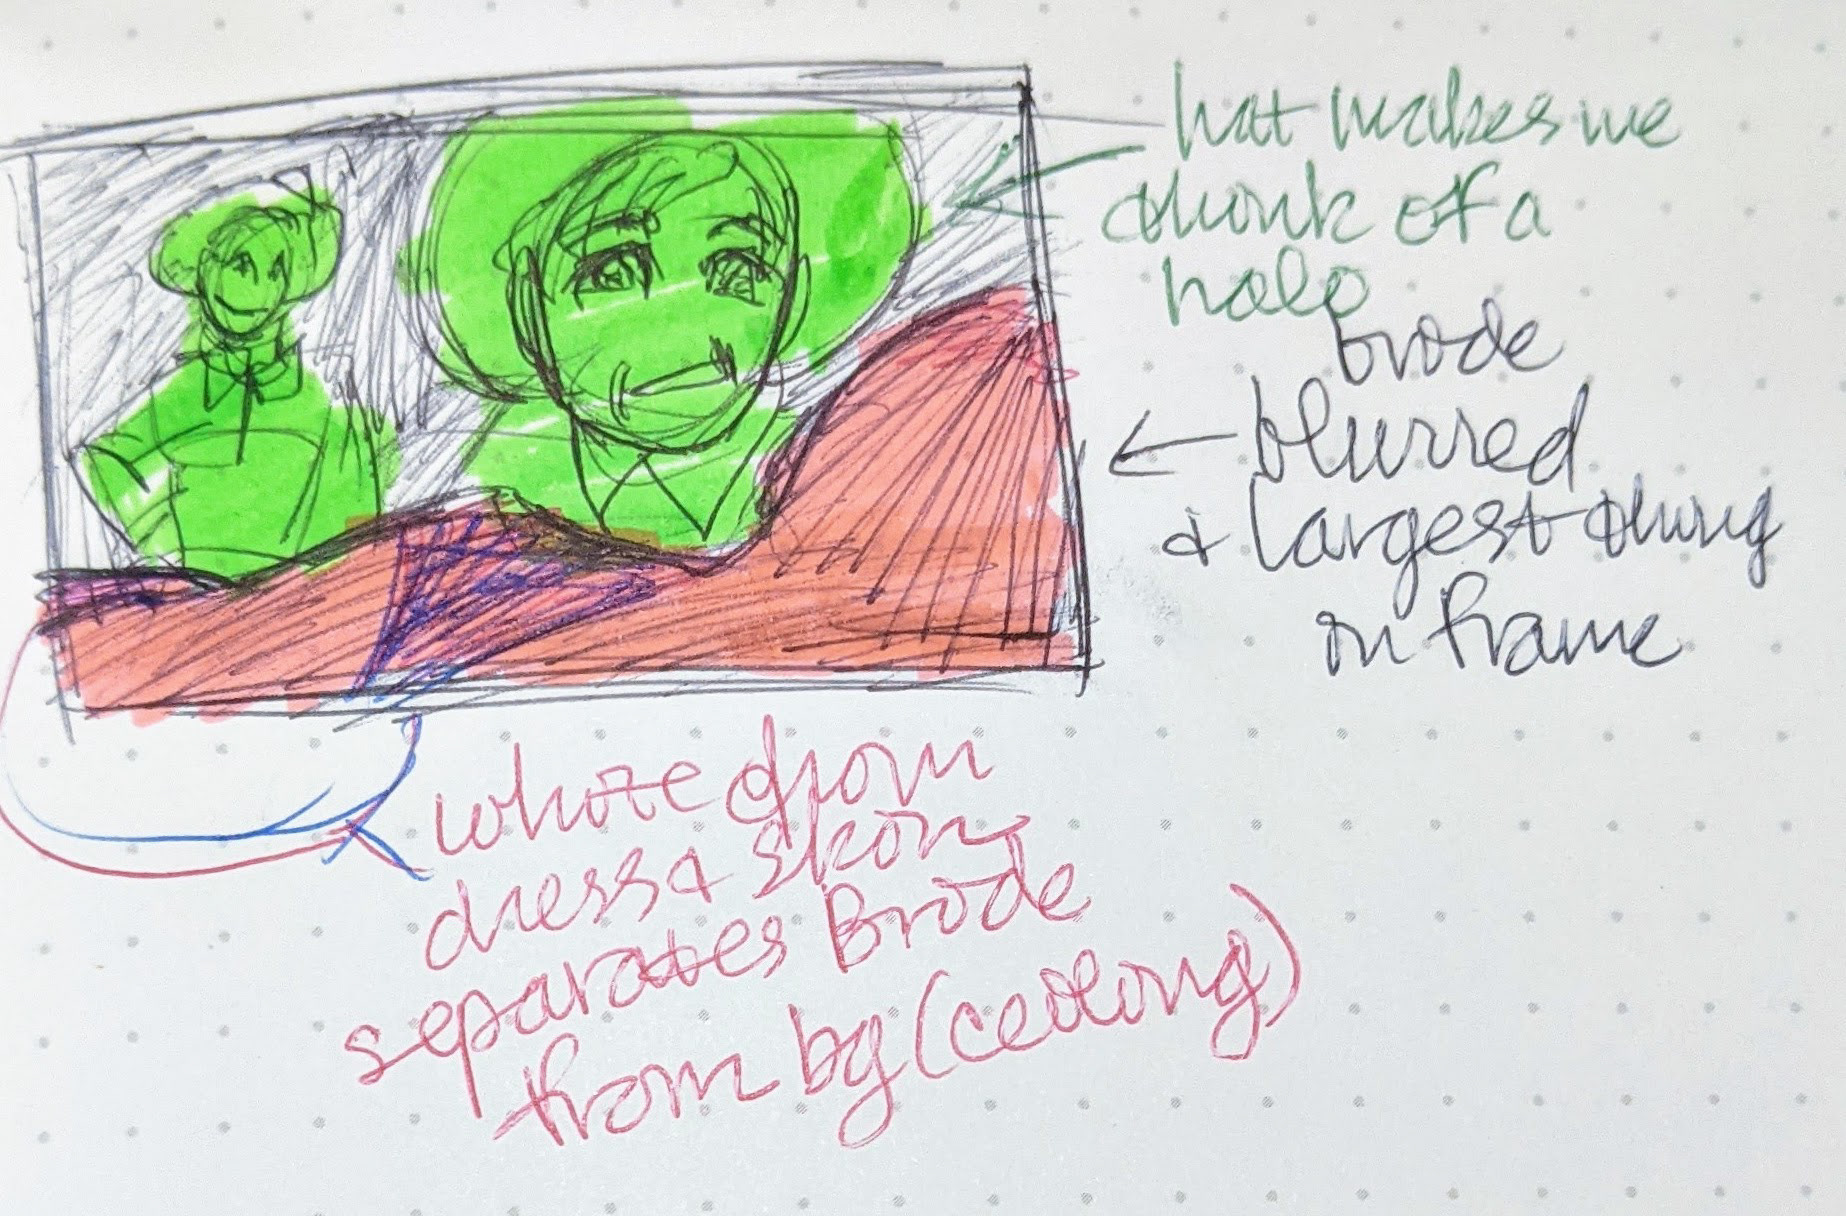 hat makes me
think of a
halo
bride
blurred
& largest thing
in frame
white from
dress & skin
separates Bride
from bg (ceiling)